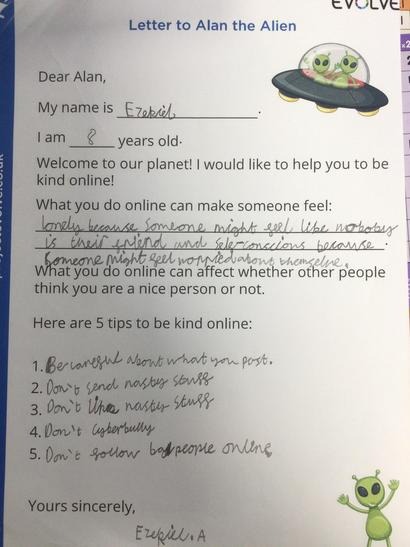 EVOLVE
Letter to Alan the Alien
Dear Alan,
My name is Ezekiel.
I am 8 years old.
Welcome to our planet! I would like to help you to be
kind online!
What you do online can make someone feel:
lonely because someone might feel like nobody
is their friend and self-conscious because
someone might feel worried about themselve.
What you do online can affect whether other people
think you are a nice person or not.
Here are 5 tips to be kind online:
1. Be careful about what you post.
2. Don't send nasty stuff
3. Don't like nasty stuff
4. Don't cyberbully
5. Don't follow bad people online
Yours sincerely,
Ezekiel.A